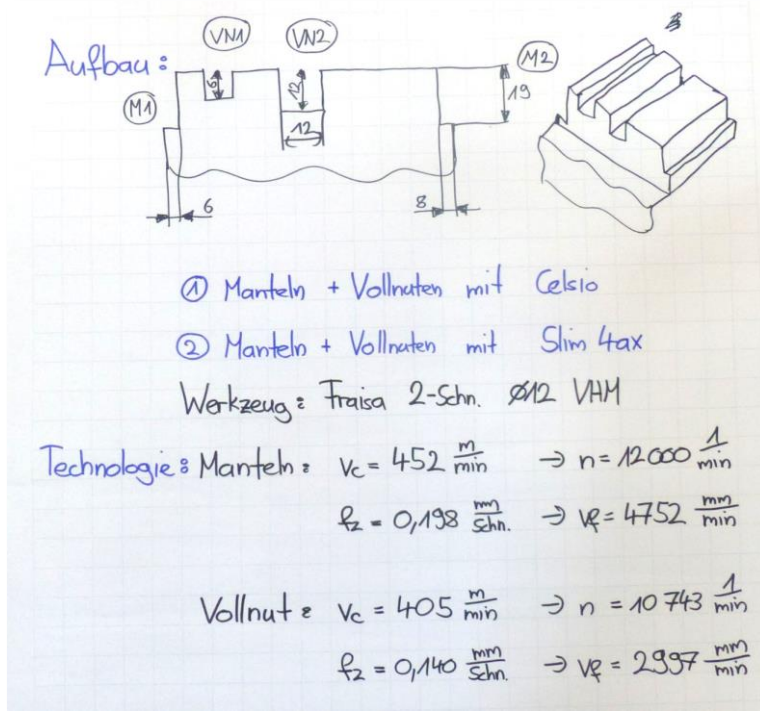 Aufbau:
VN1
VN2
M2
M1
6
12
12
19
6
8
① Manteln + Vollnuten mit Celsio
② Manteln + Vollnuten mit Slim 4ax
Werkzeug: Fraisa 2-Schn. Ø12 VHM
Technologie: Manteln: vc = 452 m/min → n = 12000 1/min
fz = 0,198 mm/Schn. → vf = 4752 mm/min
Vollnut: vc = 405 m/min → n = 10743 1/min
fz = 0,140 mm/Schn. → vf = 2997 mm/min